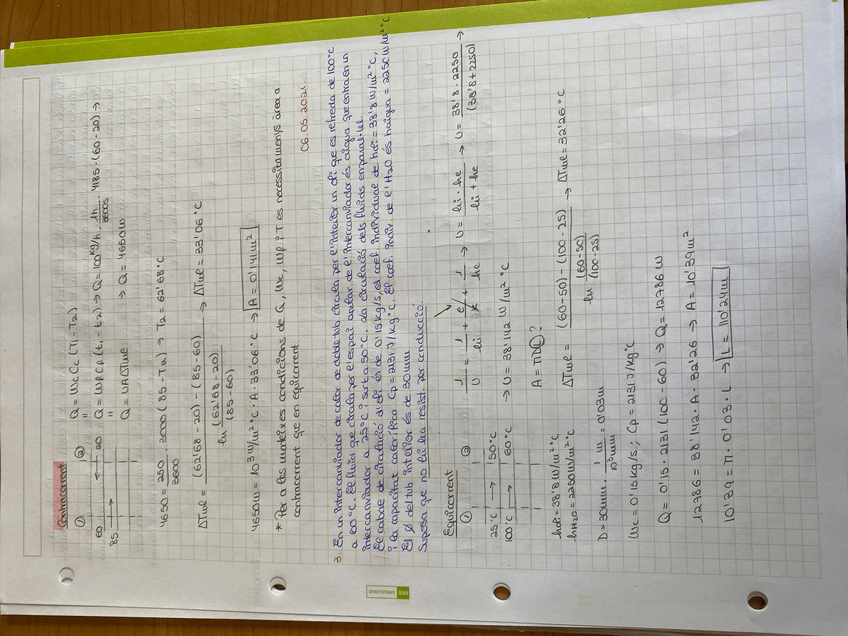 Contracorrent
① ②
60 ← 20
85 →
Q = Wc Cc (T1 - T2)
"
Q = Wp Cp (t1 - t2) → Q = 100 kg/h · 1h/3600s · 4185 · (60 - 20) →
Q = UAΔTml → Q = 4650 W
4650 = 250/3600 · 3000 (85 - T2) → T2 = 62'68 °C
ΔTml = (62'68 - 20) - (85 - 60) / ln (62'68 - 20)/(85 - 60) → ΔTml = 33'06 °C
4650W = 10³ W/m² °C · A · 33'06 °C → A = 0'141 m²
* Per a les mateixes condicions de Q, Wc, Wp i T es necessita menys àrea a
contracorrent que en equicorrent.
06.05.2021.
3. En un intercanviador de calor de doble tub circula per l'interior un oli que es refreda de 100°C
a 60°C. El fluid que circula per l'espai anular de l'intercanviador és aigua que entra en un
intercanviador a 25°C i surt a 50°C. La circulació dels fluids en paral·lel.
El cabal de circulació d'oli és de 0'15 kg/s, el coef. individual de h oli = 38'8 W/m² °C,
i la capacitat calorífica Cp = 2131 J/kg °C. El coef. indiv. de l'H2O és h aigua = 2250 W/m² °C
El Ø del tub interior és de 30 mm
Suposa que no hi ha resist. per conducció.
Equicorrent
① ②
25°C → 50°C
100°C → 60°C
1/U = 1/hi + e/k + 1/he → U = hi · he / hi + he → U = 38'8 · 2250 / (38'8 + 2250) →
→ U = 38'142 W/m² °C
h oli = 38'8 W/m² °C
h H2O = 2250 W/m² °C
A = πDL?
D = 30mm · 1 m / 10³ mm = 0'03 m
ΔTml = (60 - 50) - (100 - 25) / ln (60 - 50)/(100 - 25) → ΔTml = 32'26 °C
Wc = 0'15 kg/s ; Cp = 2131 J/kg °C
Q = 0'15 · 2131 (100 - 60) → Q = 12786 W
12786 = 38'142 · A · 32'26 → A = 10'39 m²
10'39 = π · 0'03 · L → L = 110'24m